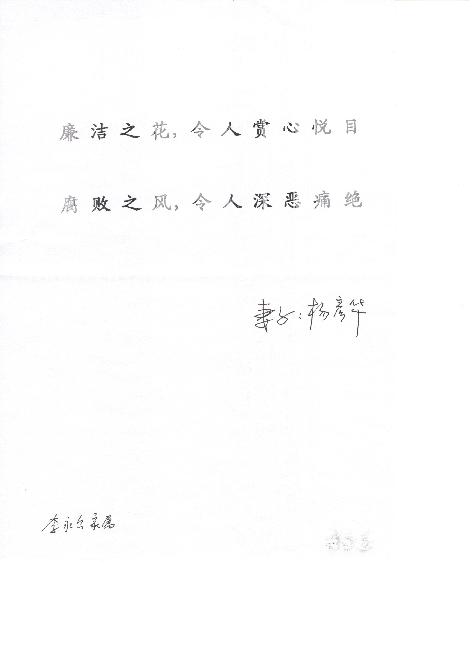 廉洁之花,令人赏心悦目
腐败之风,令人深恶痛绝
妻子:杨彦华
李永公家属